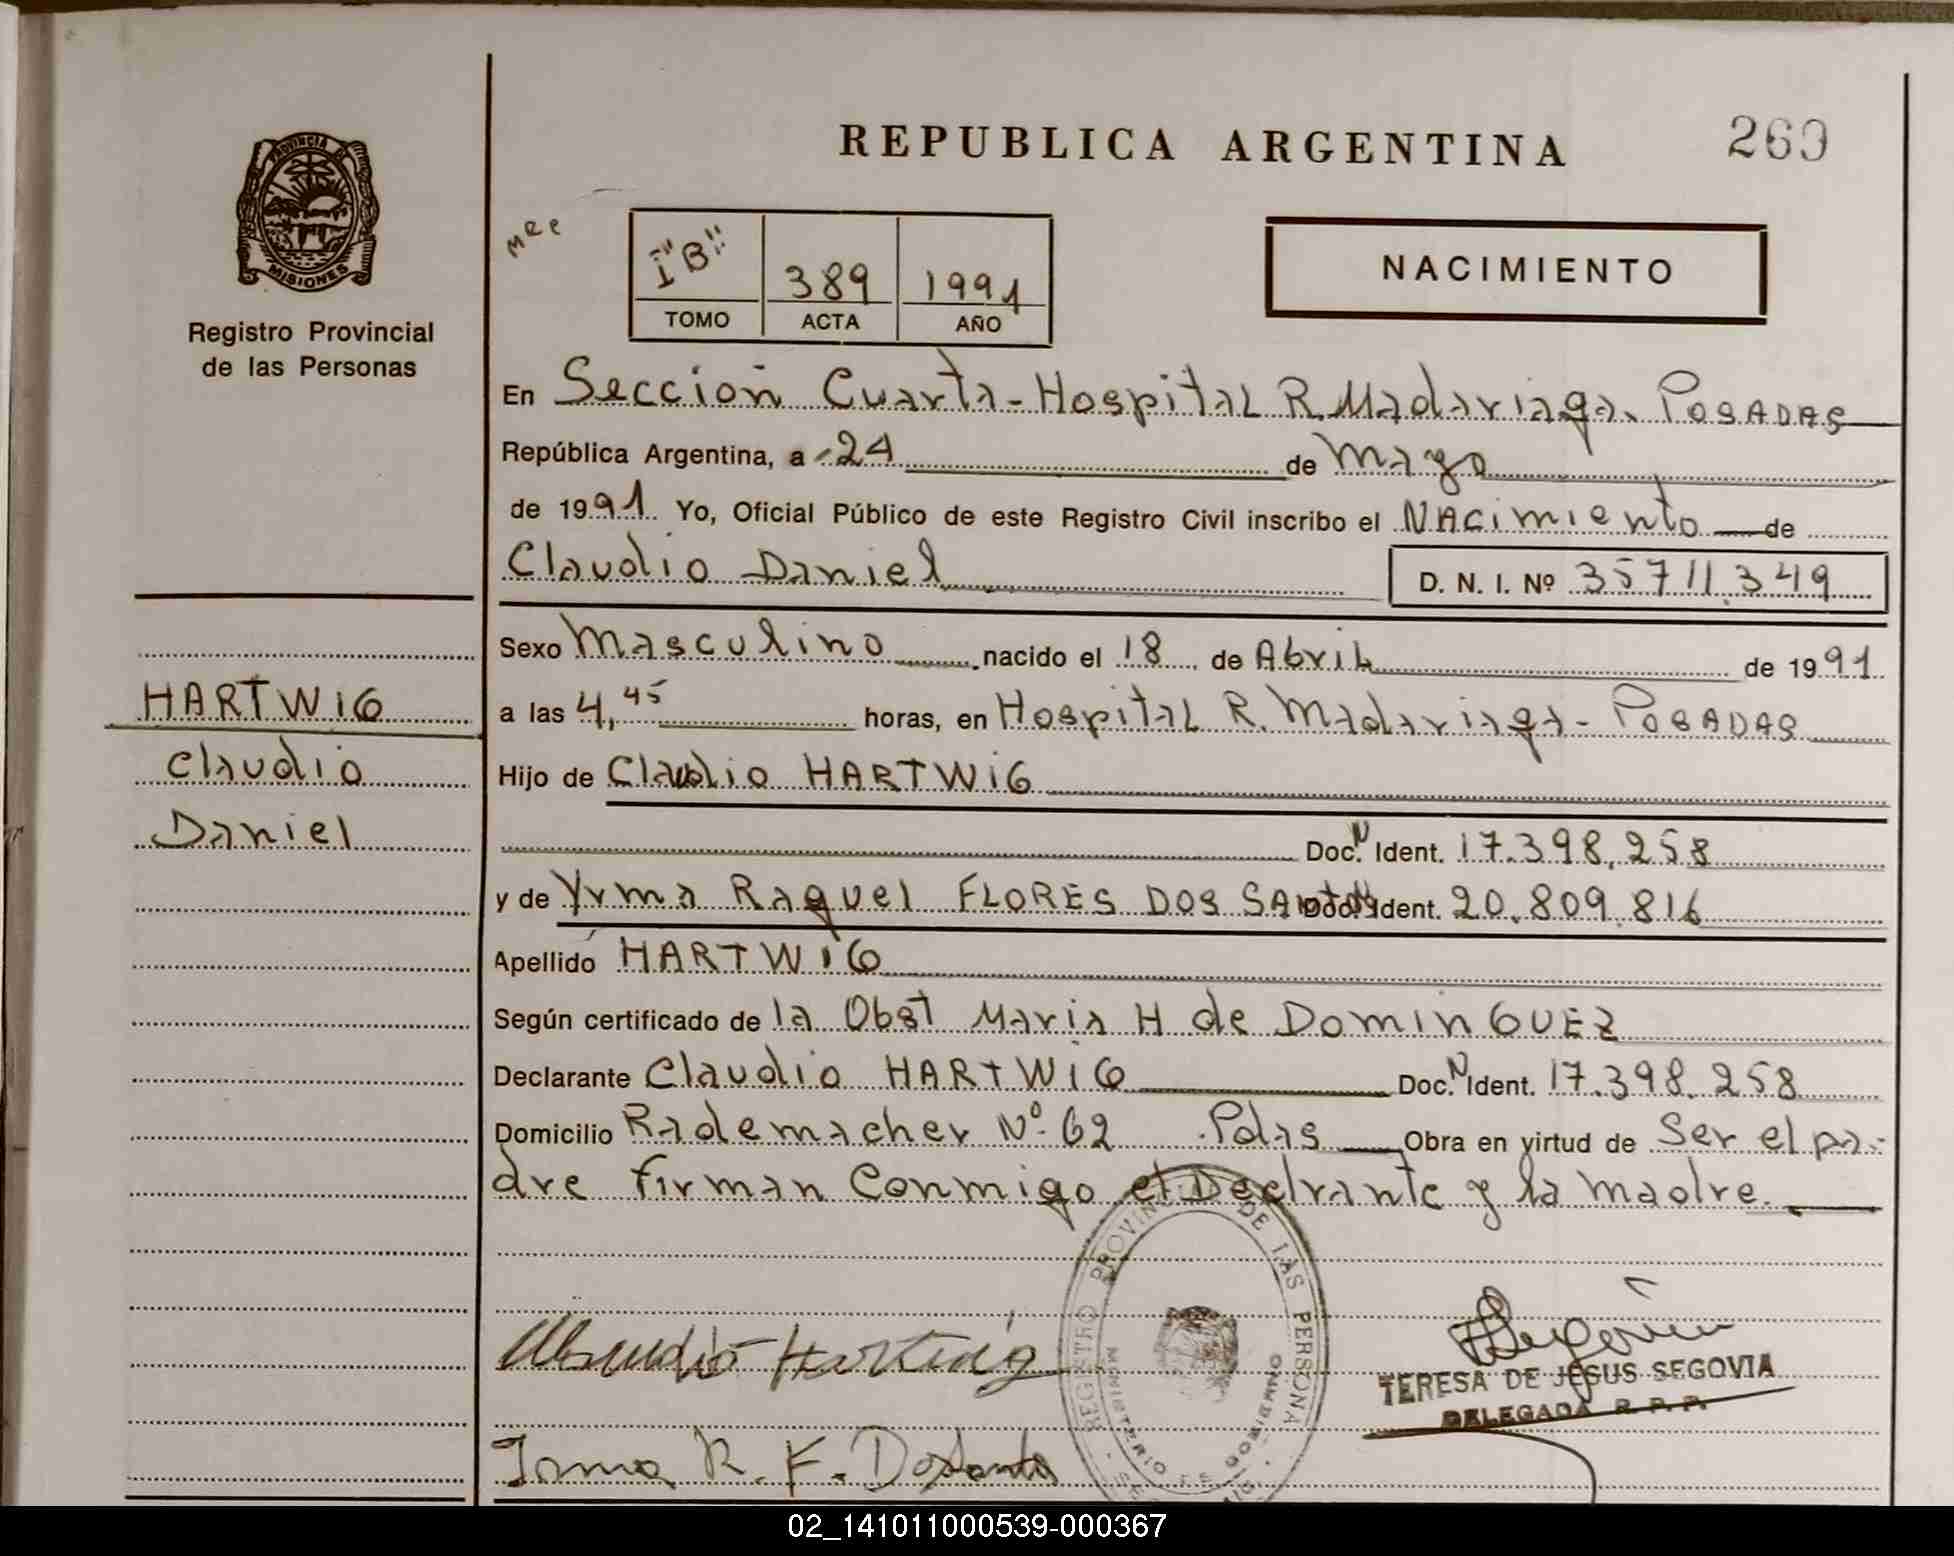 REPUBLICA ARGENTINA
269
PROVINCIA DE
MISIONES
Registro Provincial
de las Personas
I "B" 389 1991
TOMO ACTA AÑO
NACIMIENTO
En Sección Cuarta-Hospital R. Madariaga. POSADAS
República Argentina, a 24 de Mayo
de 1991. Yo, Oficial Público de este Registro Civil inscribo el NAcimiento de
Claudio Daniel
D. N. I. Nº 35711.349
Sexo Masculino nacido el 18 de Abril de 1991
a las 4,45 horas, en Hospital R. Madariaga - POSADAS
Hijo de Claudio HARTWiG
Doc. N Ident. 17.398.258
y de Yrma Raquel FLORES DOS SANTOS Doc. N Ident. 20.809.816
Apellido HARTWiG
Según certificado de la Obst Maria H de DominGUEZ
Declarante Claudio HARTWiG Doc. N Ident. 17.398.258
Domicilio Rademacher Nº 62 Pdas Obra en virtud de Ser el pa-
dre firman Conmigo el Declrante y la madre.
HARTWiG
Claudio
Daniel
REGISTRO PROVINCIAL DE LAS PERSONAS
MINISTERIO DE GOBIERNO
Claudio Hartwig
Segovia
TERESA DE JESUS SEGOVIA
DELEGADA R. P. P.
Irma R. F. Dosantos
02_141011000539-000367